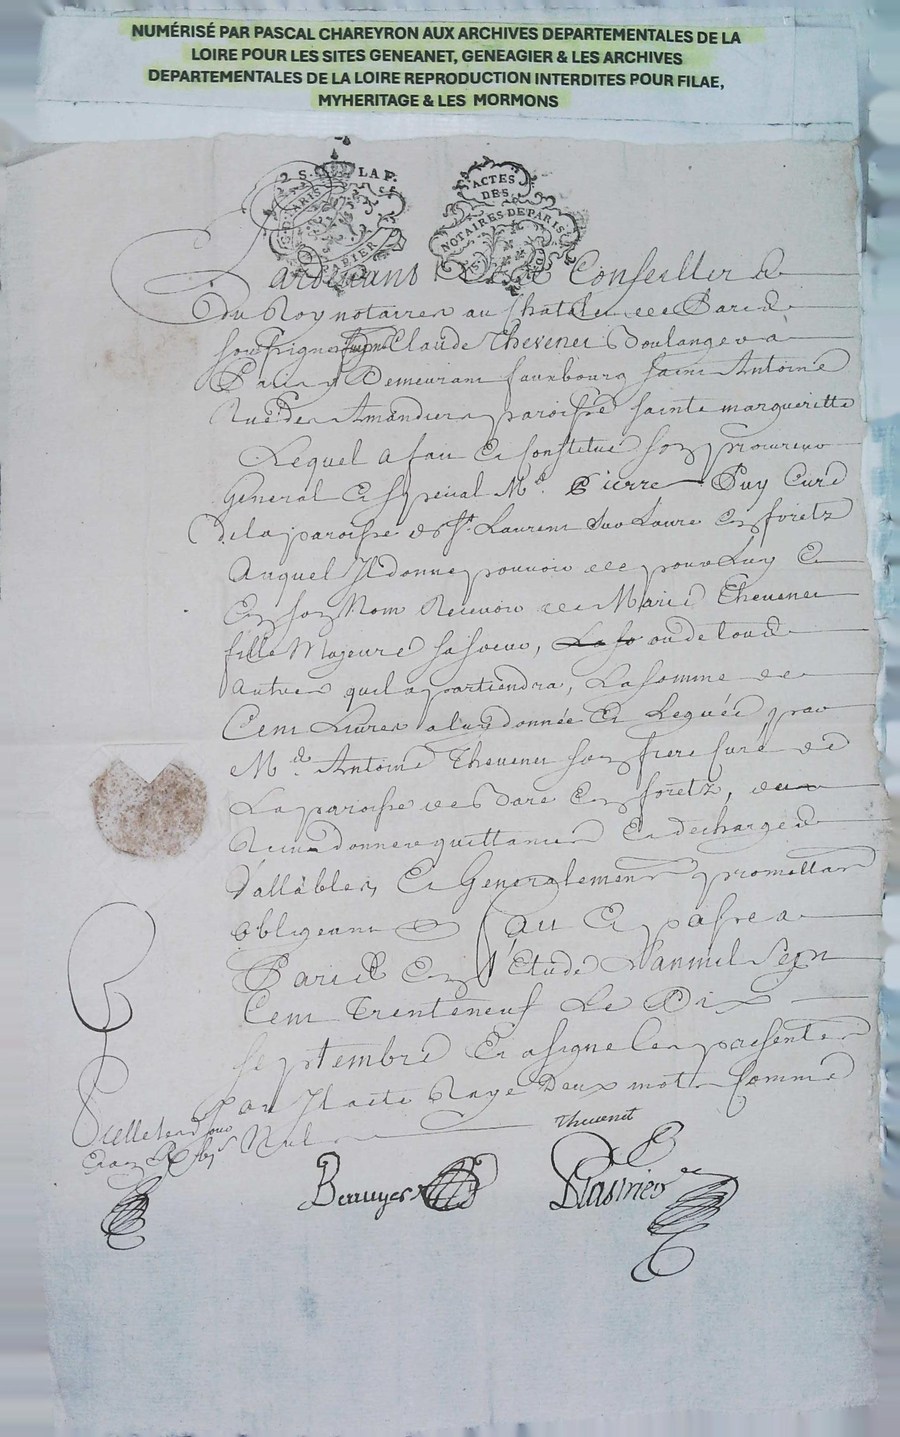 NUMÉRISÉ PAR PASCAL CHAREYRON AUX ARCHIVES DEPARTEMENTALES DE LA
LOIRE POUR LES SITES GENEANET, GENEAGIER & LES ARCHIVES
DEPARTEMENTALES DE LA LOIRE REPRODUCTION INTERDITES POUR FILAE,
MYHERITAGE & LES MORMONS
2 S. LA F.
ACTES
DES
NOTAIRES DE PARIS
Pardevans Les Conseillers
du Roy notaires au Chatelet de Paris
soussignes Claude Thevenet Boulanger a
Paris y Demeurant fauxbourg saint Antoine
Rue des Amandiers paroisse sainte margueritte
Lequel a fait et Constitué son procureur
General et special Me. Pierre Puy Curé
de la paroisse de St. Laurent Sur Loire en foretz
Auquel Il donne pouvoir de pour Luy et
En son Nom Recevoir de Marie Thevenet
fille Majeure sa soeur, ou de tous
Autres quil apartiendra, La somme de
Cent Livres a luy donnée et Leguée par
Me. Antoine Thevenet son frere Curé de
La paroisse de en foretz, du
Receu donner quittances Et decharges
Vallables, Et Generalement promettant
obligeant fait Et passé a
Paris En L'Etude L'an mil Sept
Cent Trenteneuf Le Dix
septembre Et a signé les presentes
ou Il a eté Rayé Deux mots Comme
Nuls
Thevenet
Scellé lesd jour
Et an